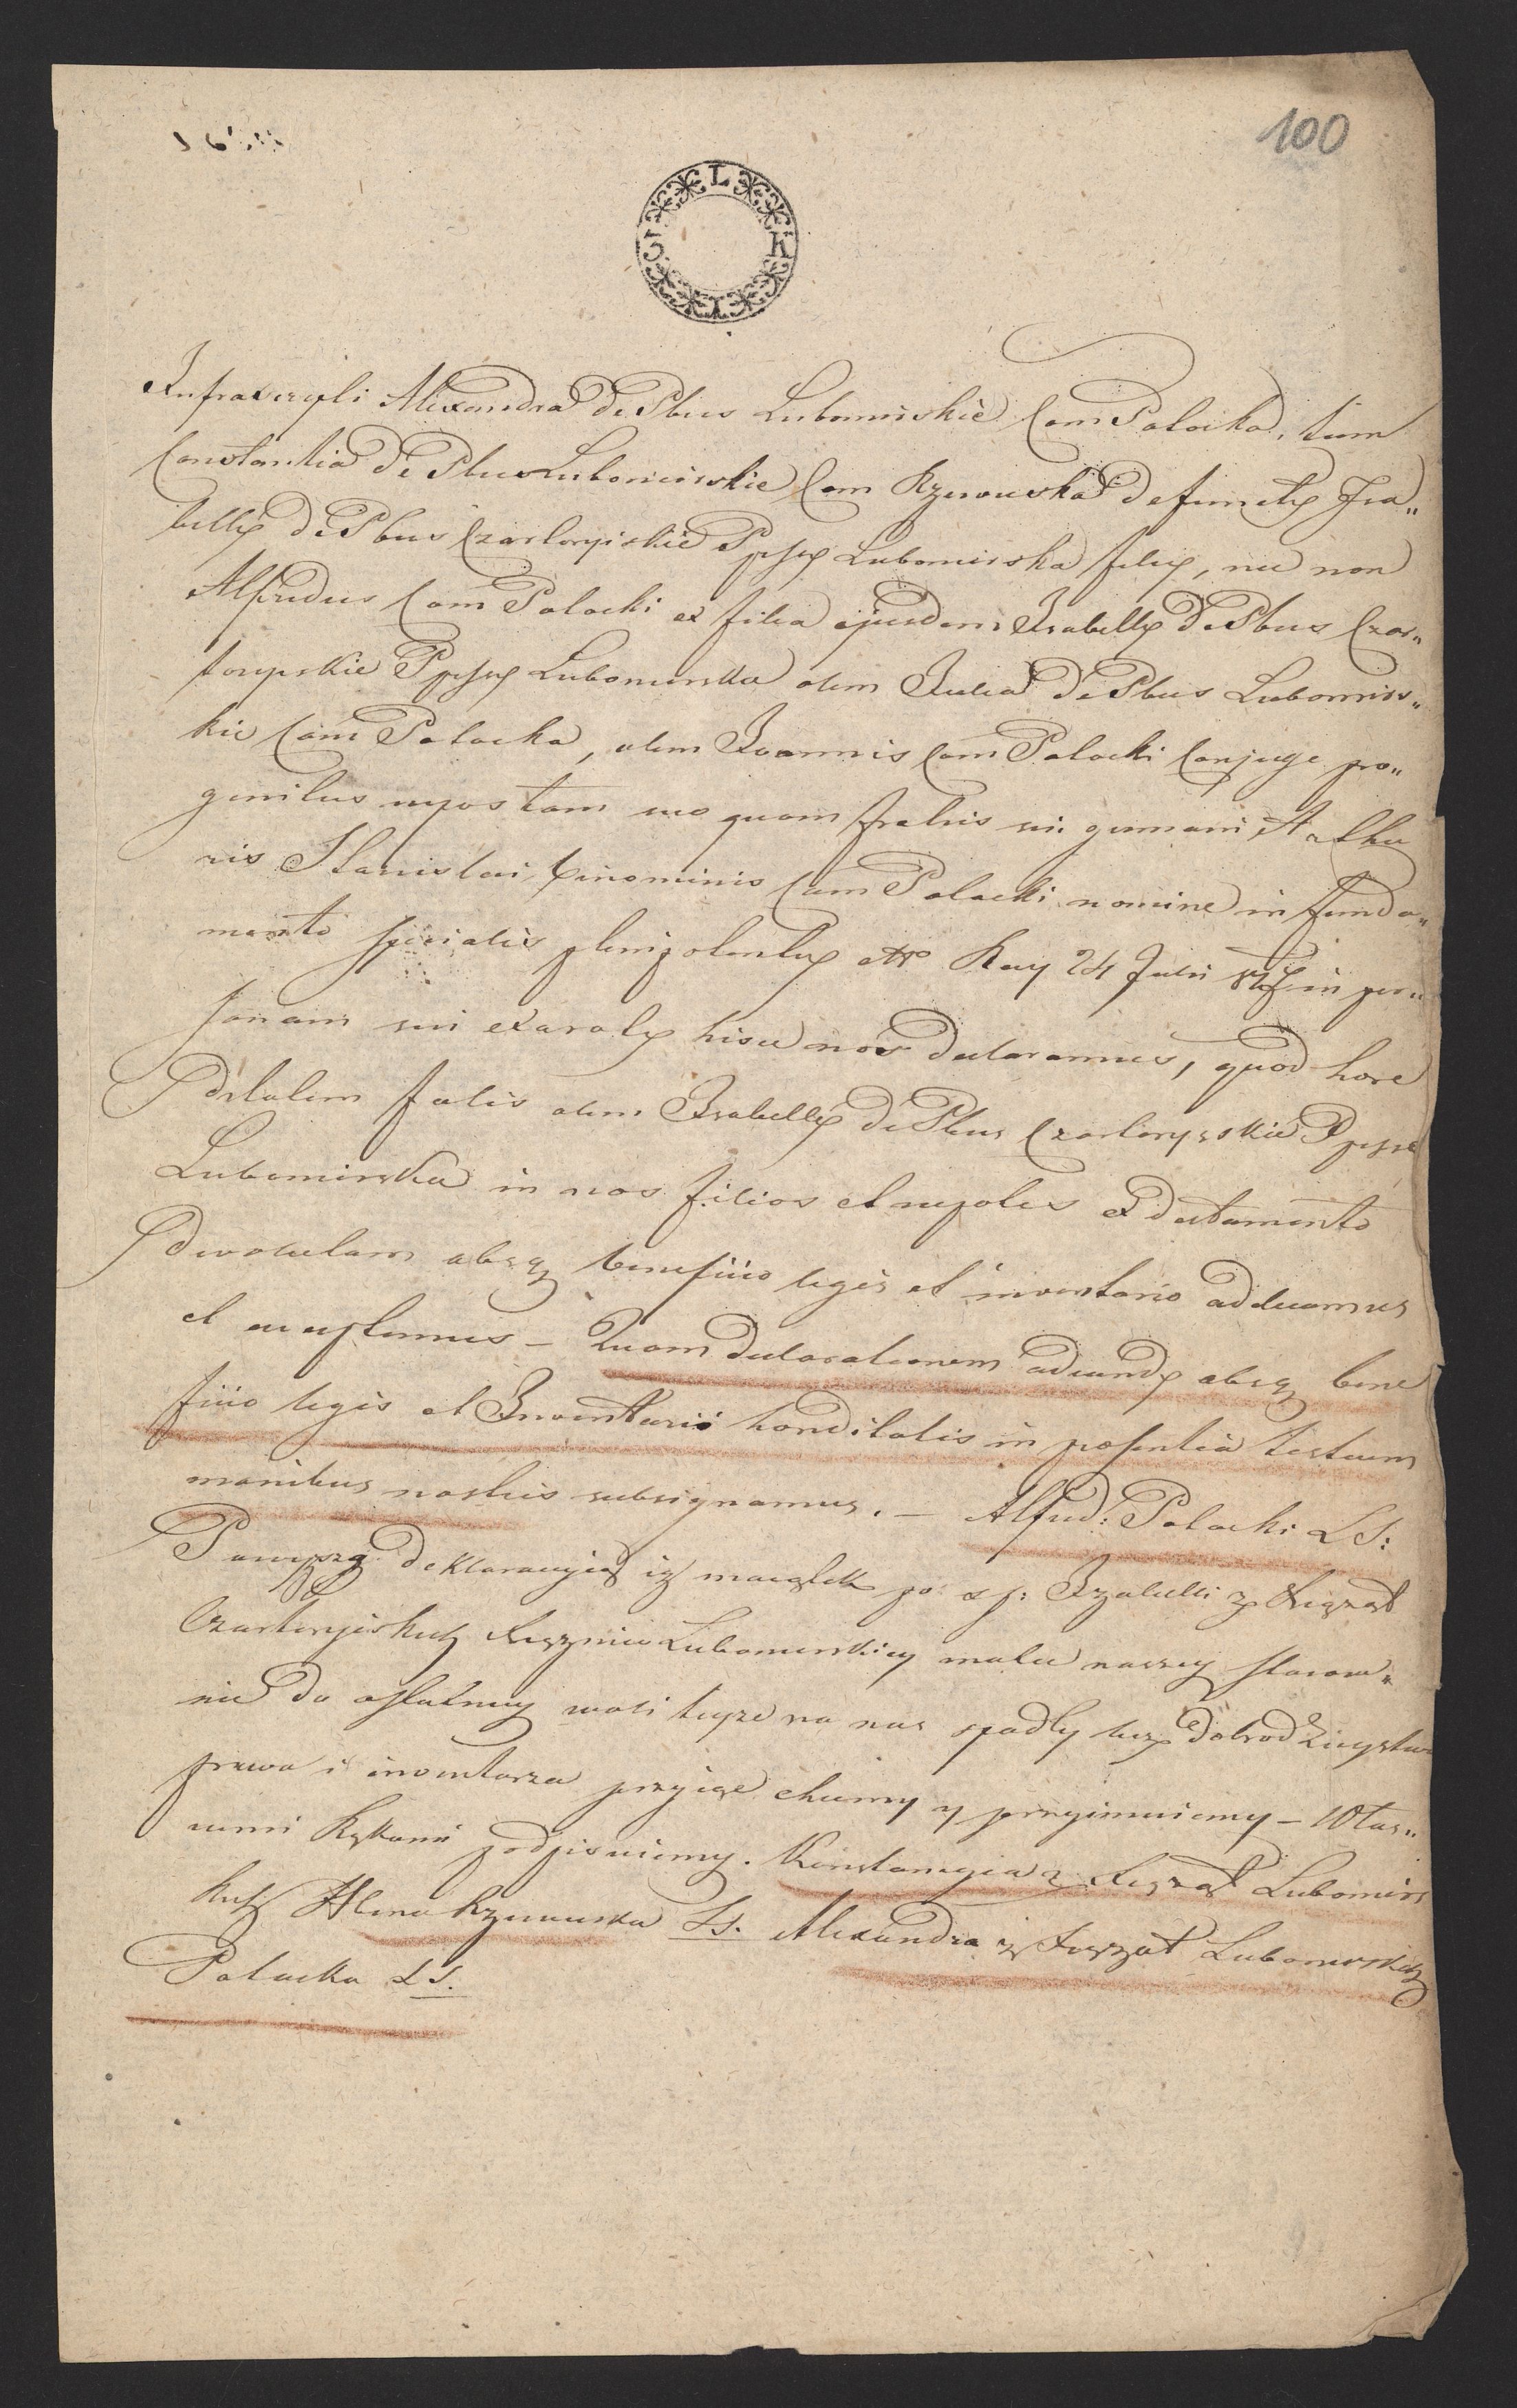 100
L K I 3
Infrascripti Alexandra de Pbus Lubomirskie Com Potocka, tum
Constantia de Pbus Lubomirskie Com Rzewuska defunctę Isa„
bellę de Pbus Czartoryiskie Ppssę Lubomirska filię, nec non
Alfredus Com Potocki ex filia ejusdem Isabellę de Pbus Czar„
toryskie Ppssę Lubomirska olim Julia de Pbus Lubomirs„
kie Com Potocka, olim Joannis Com Potocki Conjuge pro„
genitus nepos tam suo quam fratris sui germani Arthu
ris Stanislai binominis Com Potocki nomine in funda„
mento specialis plenipotentię dtto 24 Julii in per„
sonam sui exaratę hisce nos declaramus, quod here
ditatem fatis olim Isabellę de Pbus Czartoryskie Ppssę
Lubomirska in nos filios et nepotes ex testamento
devolutam absq beneficio legis et inventario adeamus
et acceptemus – Quam declarationem adeundę absq bene
ficio legis et Inventarii hereditatis in presentia testium
manibus nostris subsignamus. – Alfred: Potocki LS:
Powyszą deklaracyią iż maiątek po ś p: Izabelli z Xiążąt
Czartoryiskich Xiężnie Lubomirskiey matce naszey stosow„
nie do ostatniey woli teyże na nas spadły bez dobrodzieystwa
prawa i inwentarza przyiąć chcemy y przyimuiemy – Włas„
nemi Rękami podpisuiemy. Konstancyia z Xiążąt Lubomirs
kich Hrna Rzewuska LS. Alexandra z Xiążąt Lubomirskich
Potocka LS.